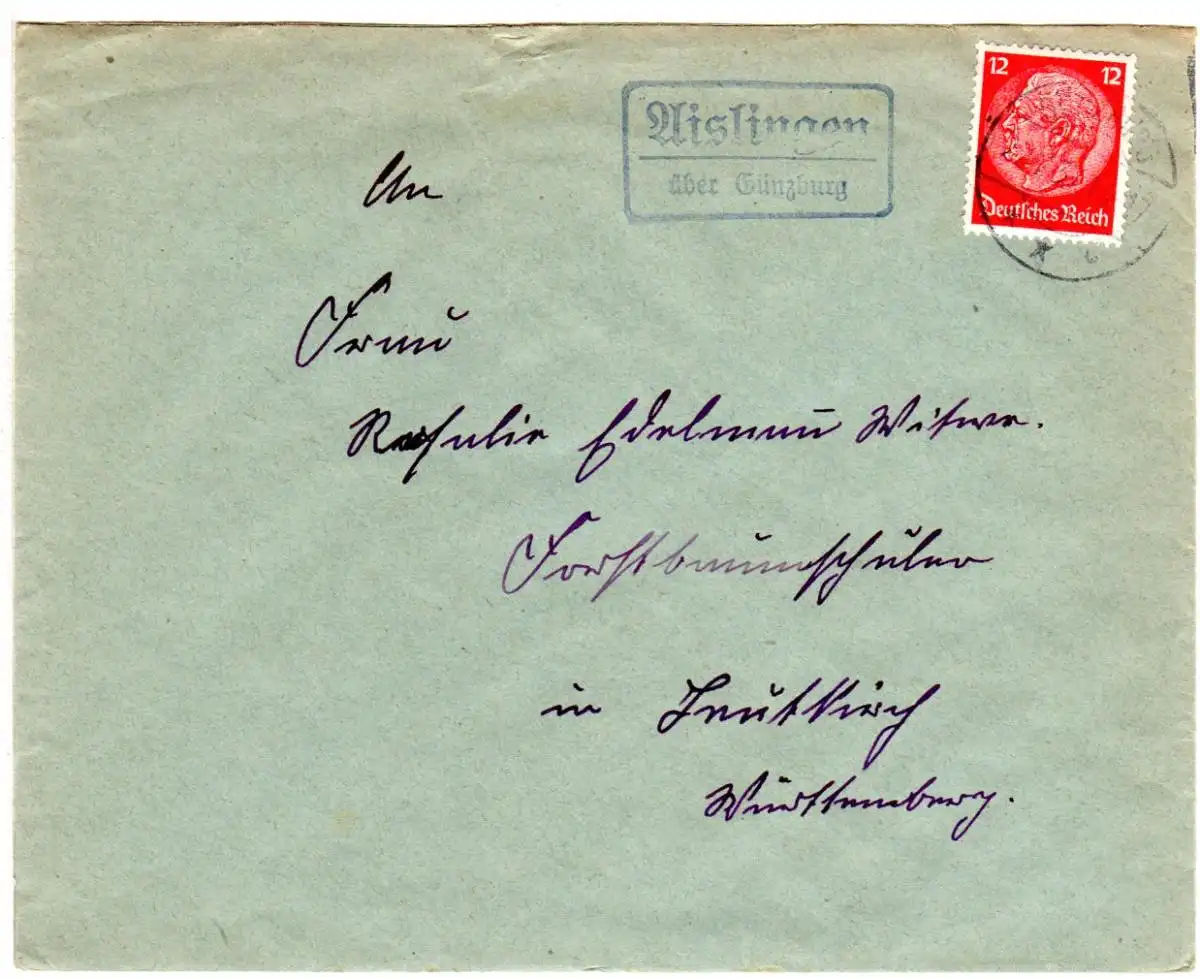 Aislingen
über Günzburg
12 12
Deutsches Reich
An
Frau
Rosalie Edelmann Witwe.
Forstbaumschulen
in Leutkirch
Württemberg.